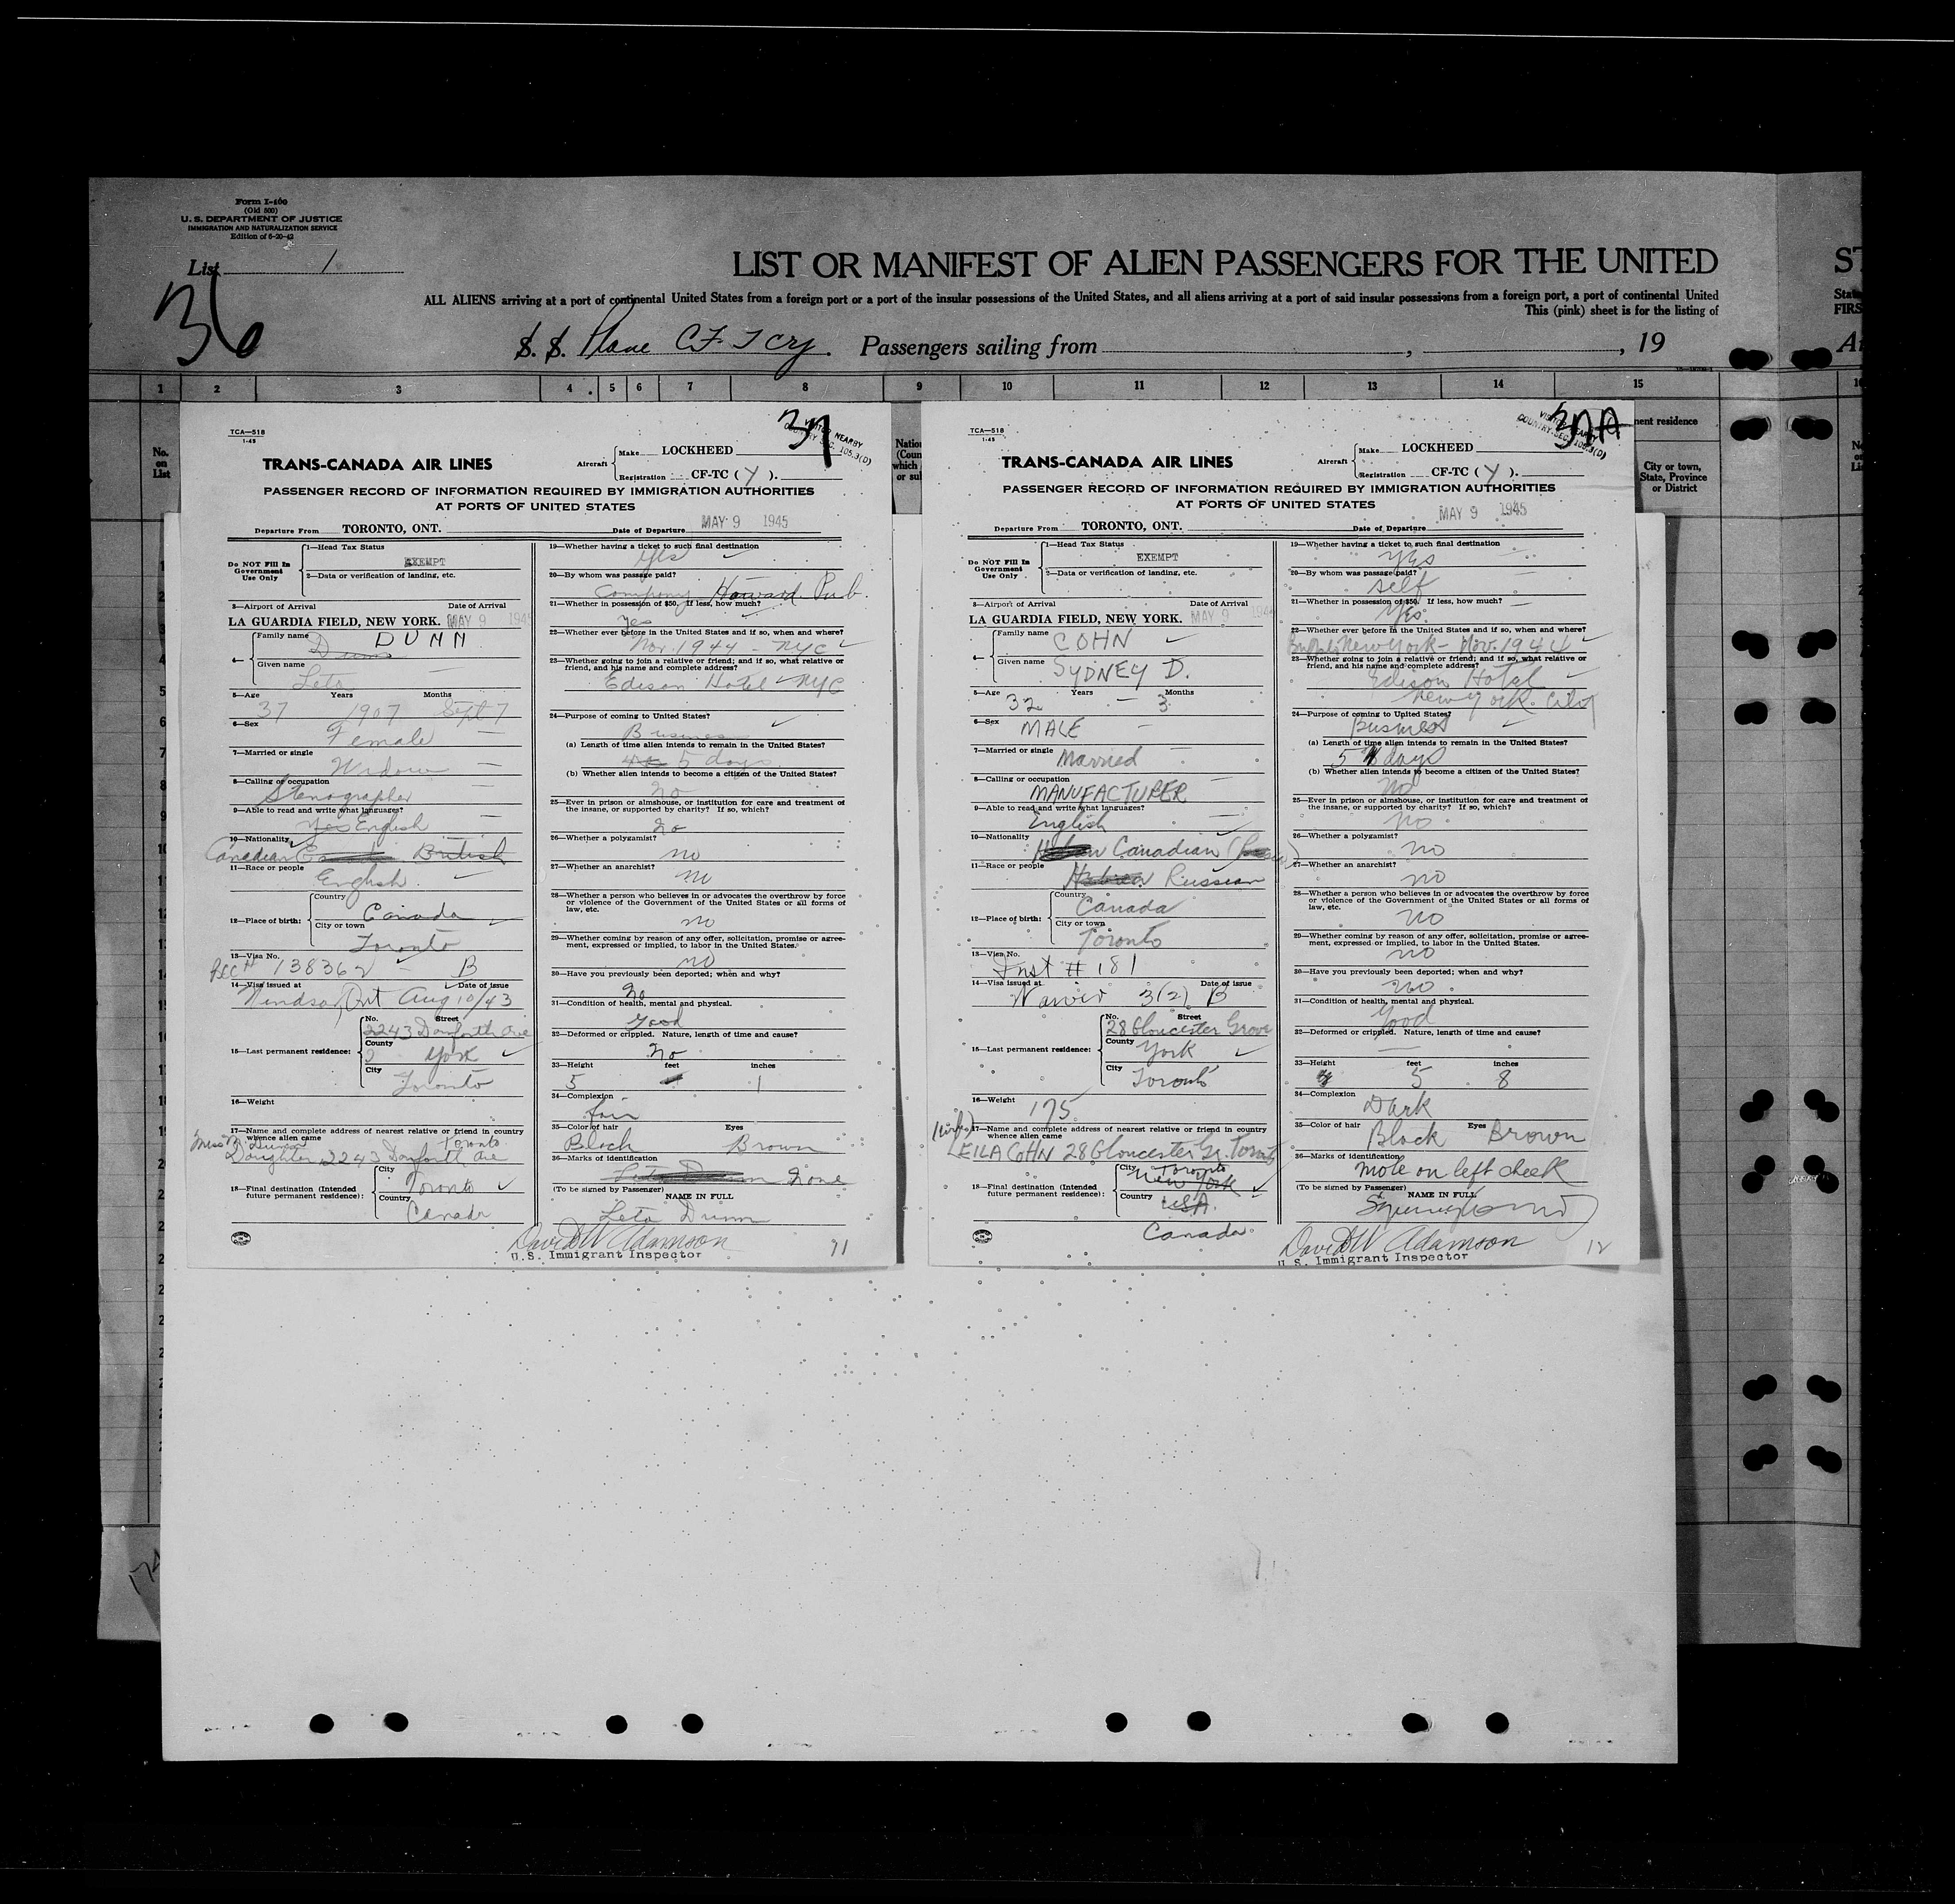 Form I-466
(Old 500)
U. S. DEPARTMENT OF JUSTICE
IMMIGRATION AND NATURALIZATION SERVICE
Edition of 6-20-42
List 1
36
LIST OR MANIFEST OF ALIEN PASSENGERS FOR THE UNITED
ST
ALL ALIENS arriving at a port of continental United States from a foreign port or a port of the insular possessions of the United States, and all aliens arriving at a port of said insular possessions from a foreign port, a port of continental United
This (pink) sheet is for the listing of
S. S. Plane CF TCY. Passengers sailing from , , 19
1 2 3 4 5 6 7 8 9 10 11 12 13 14 15
No. on List
City or town, State, Province or District
TCA—518
1-45
37
VISITOR NEARBY
COUNTRY. SEC. 105.3(D)
TRANS-CANADA AIR LINES
Aircraft Make LOCKHEED
Registration CF-TC ( Y ).
PASSENGER RECORD OF INFORMATION REQUIRED BY IMMIGRATION AUTHORITIES
AT PORTS OF UNITED STATES
Departure From TORONTO, ONT. Date of Departure MAY 9 1945
Do NOT Fill In Government Use Only
1—Head Tax Status
EXEMPT
2—Data or verification of landing, etc.
3—Airport of Arrival Date of Arrival
LA GUARDIA FIELD, NEW YORK. MAY 9 1945
4— Family name DUNN
Dunn
Given name
Leta
5—Age Years Months
37 1907 Sept 7
6—Sex
Female
7—Married or single
Widow
8—Calling or occupation
Stenographer
9—Able to read and write what languages?
Yes English
10—Nationality
Canadian British
11—Race or people
English
12—Place of birth: Country
Canada
City or town
Toronto
13—Visa No.
138362 B
14—Visa issued at Date of issue
Windsor, Ont Aug 10/43
15—Last permanent residence: No. Street
2243 Danforth Ave
County
York
City
Toronto
16—Weight
17—Name and complete address of nearest relative or friend in country whence alien came
Miss Dunn Toronto
Daughter 2243 Danforth Ave
18—Final destination (Intended future permanent residence): City
Toronto
Country
Canada
19—Whether having a ticket to such final destination
Yes
20—By whom was passage paid?
Company Howard Pub.
21—Whether in possession of $50. If less, how much?
Yes
22—Whether ever before in the United States and if so, when and where?
Nov. 1944 - NYC
23—Whether going to join a relative or friend; and if so, what relative or friend, and his name and complete address?
Edison Hotel NYC
24—Purpose of coming to United States?
Business
(a) Length of time alien intends to remain in the United States?
5 days
(b) Whether alien intends to become a citizen of the United States?
No
25—Ever in prison or almshouse, or institution for care and treatment of the insane, or supported by charity? If so, which?
No
26—Whether a polygamist?
no
27—Whether an anarchist?
no
28—Whether a person who believes in or advocates the overthrow by force or violence of the Government of the United States or all forms of law, etc.
no
29—Whether coming by reason of any offer, solicitation, promise or agreement, expressed or implied, to labor in the United States.
no
30—Have you previously been deported; when and why?
No
31—Condition of health, mental and physical.
Good
32—Deformed or crippled. Nature, length of time and cause?
No
33—Height feet inches
5 1
34—Complexion
fair
35—Color of hair Eyes
Black Brown
36—Marks of identification
None
(To be signed by Passenger) NAME IN FULL
Leta Dunn
David W Adamson
U.S. Immigrant Inspector
11
TCA—518
1-45
37A
VISITOR NEARBY
COUNTRY. SEC. 105.3(D)
TRANS-CANADA AIR LINES
Aircraft Make LOCKHEED
Registration CF-TC ( Y ).
PASSENGER RECORD OF INFORMATION REQUIRED BY IMMIGRATION AUTHORITIES
AT PORTS OF UNITED STATES
Departure From TORONTO, ONT. Date of Departure MAY 9 1945
Do NOT Fill In Government Use Only
1—Head Tax Status
EXEMPT
2—Data or verification of landing, etc.
3—Airport of Arrival Date of Arrival
LA GUARDIA FIELD, NEW YORK. MAY 9 194
4— Family name
COHN
Given name
SYDNEY D.
5—Age Years Months
32 - 3
6—Sex
MALE
7—Married or single
Married
8—Calling or occupation
MANUFACTURER
9—Able to read and write what languages?
English
10—Nationality
Canadian
11—Race or people
Hebrew Russian
12—Place of birth: Country
Canada
City or town
Toronto
13—Visa No.
Inst # 181
14—Visa issued at Date of issue
Waiver 3(2) B
15—Last permanent residence: No. Street
28 Gloucester Grove
County
York
City
Toronto
16—Weight 175
17—Name and complete address of nearest relative or friend in country whence alien came
(Wife)
LEILA COHN 28 Gloucester Gr. Toronto
18—Final destination (Intended future permanent residence): City Toronto
New York
Country
USA.
Canada
19—Whether having a ticket to such final destination
Yes
20—By whom was passage paid?
self
21—Whether in possession of $50. If less, how much?
Yes.
22—Whether ever before in the United States and if so, when and where?
Buffalo New York - Nov. 1944
23—Whether going to join a relative or friend; and if so, what relative or friend, and his name and complete address?
Edison Hotel
New York. City
24—Purpose of coming to United States?
Business
(a) Length of time alien intends to remain in the United States?
5 days
(b) Whether alien intends to become a citizen of the United States?
No
25—Ever in prison or almshouse, or institution for care and treatment of the insane, or supported by charity? If so, which?
no.
26—Whether a polygamist?
no
27—Whether an anarchist?
no
28—Whether a person who believes in or advocates the overthrow by force or violence of the Government of the United States or all forms of law, etc.
no
29—Whether coming by reason of any offer, solicitation, promise or agreement, expressed or implied, to labor in the United States.
no
30—Have you previously been deported; when and why?
no.
31—Condition of health, mental and physical.
Good
32—Deformed or crippled. Nature, length of time and cause?
33—Height feet inches
5 8
34—Complexion
Dark
35—Color of hair Eyes
Black Brown
36—Marks of identification
mole on left cheek
(To be signed by Passenger) NAME IN FULL
David W Adamson
U.S. Immigrant Inspector
12